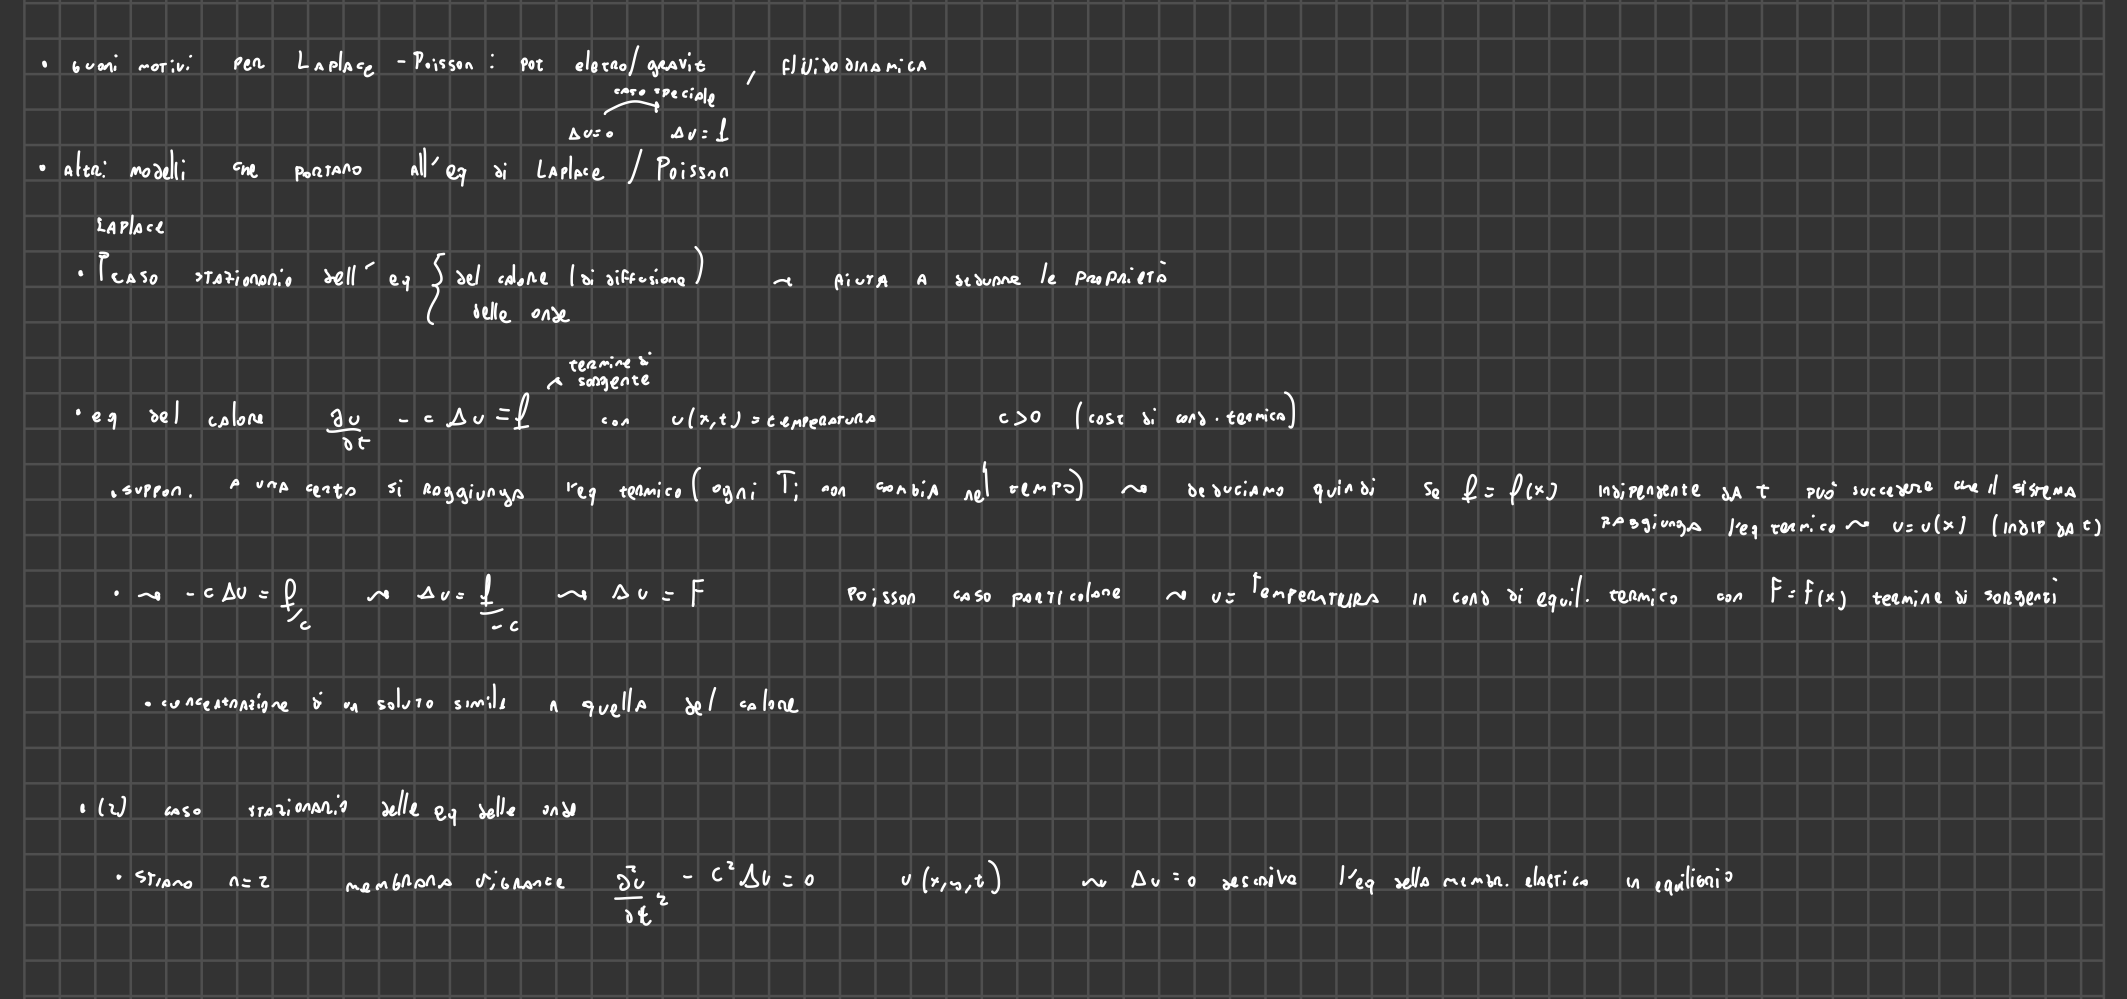 • buoni motivi per Laplace - Poisson : pot eletro/gravit , fluidodinamica
caso speciale
Δu=0 Δu=f
• altri modelli che portano all'eq di Laplace / Poisson
Laplace
• caso stazionario dell' eq { del calore (di diffusione) ⇝ aiuta a dedurre le proprietà
delle onde
termine di
sorgente
• eq del calore ∂u/∂t - c Δu = f con u(x,t) = temperatura c>0 (cost di cond. termica)
• suppon. a una certo si raggiunga l'eq termico (ogni T; non cambia nel tempo) ⇝ deduciamo quindi se f = f(x) indipendente da t può succedere che il sistema
raggiunga l'eq termico ⇝ u=u(x) (indip da t)
• ⇝ -c Δu = f/c ⇝ Δu = f/-c ⇝ Δu = F Poisson caso particolare ⇝ u= temperatura in cond di equil. termico con F=F(x) termine di sorgenti
• concentrazione di un soluto simile a quella del calore
• (2) caso stazionario delle eq delle onde
• stiamo n=2 membrana vibrante ∂²u/∂t² - c²Δu = 0 u(x,y,t) ⇝ Δu=0 descrive l'eq della membr. elastica in equilibrio